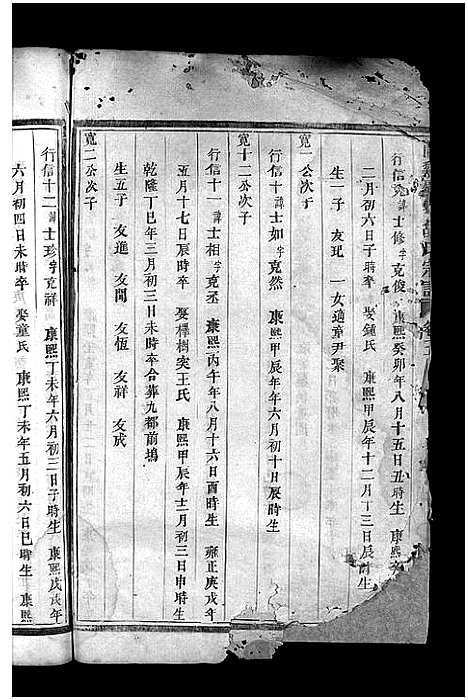 行信 諱士修字克俊 康熙癸卯年八月十五日丑時生 康熙
二月初六日子時卒 娶鍾氏 康熙甲辰年十二月十三日辰時生
生一子 友玘 一女適章尹聚
寬一公次子
行信十 諱士如字克然 康熙甲辰年年初十日辰時生
寬十二公次子
行信十一諱士相字克丞 康熙丙午年八月十六日酉時生 雍正庚戌年
五月十七日辰時卒 娶樺樹突王氏 康熙甲辰年十二月初三日申時生
乾隆丁巳年三月初三日未時卒合葬九都前塢
生五子 友進 友聞 友恆 友祥 友成
寬二公次子
行信十二諱士珍字克祥 康熙丁未年六月初三日子時生 康熙戊戌年
六月初四日未時卒 娶童氏 康熙丁未年五月初六日巳時生 康熙